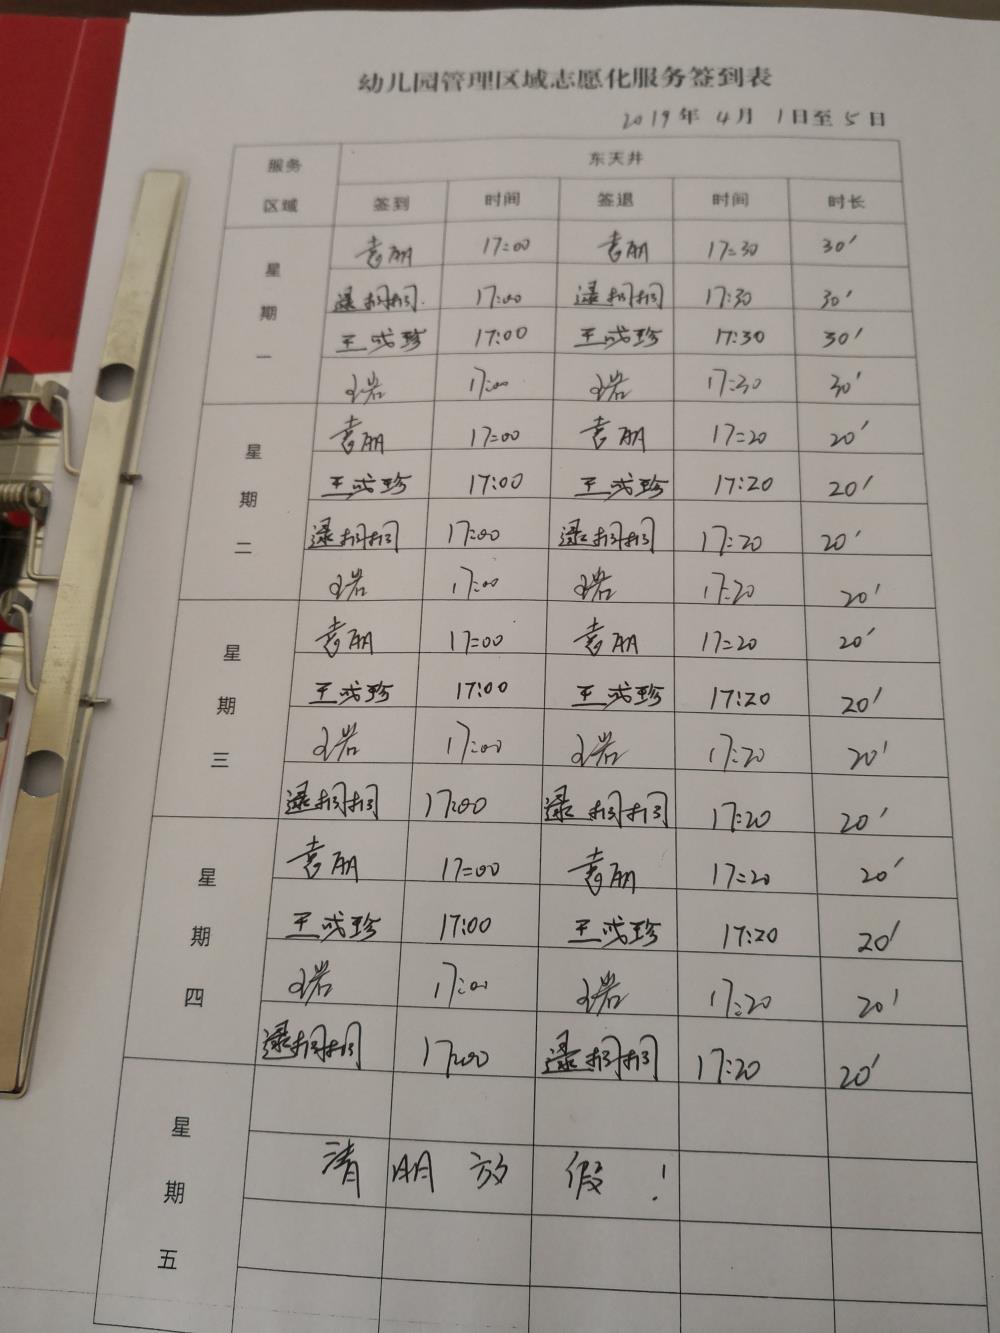 幼儿园管理区域志愿化服务签到表
2019年 4月 1日至5日
服务区域 东天井
签到 时间 签退 时间 时长
星期一
袁朋 17:00 袁朋 17:30 30'
逯栩栩 17:00 逯栩栩 17:30 30'
王成珍 17:00 王成珍 17:30 30'
17:00 17:30 30'
星期二
袁朋 17:00 袁朋 17:20 20'
王成珍 17:00 王成珍 17:20 20'
逯栩栩 17:00 逯栩栩 17:20 20'
17:00 17:20 20'
星期三
袁朋 17:00 袁朋 17:20 20'
王成珍 17:00 王成珍 17:20 20'
17:00 17:20 20'
逯栩栩 17:00 逯栩栩 17:20 20'
星期四
袁朋 17:00 袁朋 17:20 20'
王成珍 17:00 王成珍 17:20 20'
17:00 17:20 20'
逯栩栩 17:00 逯栩栩 17:20 20'
星期五
清明放假！